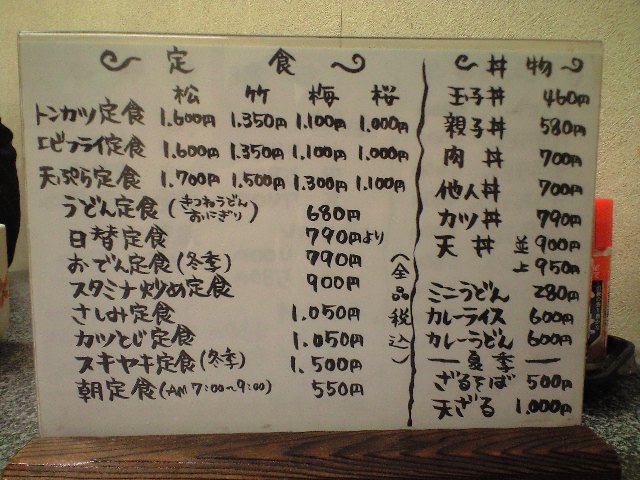 定食
松 竹 梅 桜
トンカツ定食 1.600円 1.350円 1.100円 1.000円
エビフライ定食 1.600円 1.350円 1.100円 1.000円
天ぷら定食 1.700円 1.500円 1.300円 1.100円
うどん定食(きつねうどん おにぎり) 680円
日替定食 790円より
おでん定食(冬季) 790円
スタミナ炒め定食 900円
さしみ定食 1.050円
カツとじ定食 1.050円
スキヤキ定食(冬季) 1.500円
朝定食(AM 7:00〜9:00) 550円
(全品税込)
丼物
玉子丼 460円
親子丼 580円
肉丼 700円
他人丼 700円
カツ丼 790円
天丼 並 900円
上 950円
ミニうどん 280円
カレーライス 600円
カレーうどん 600円
夏季
ざるそば 500円
天ざる 1.000円